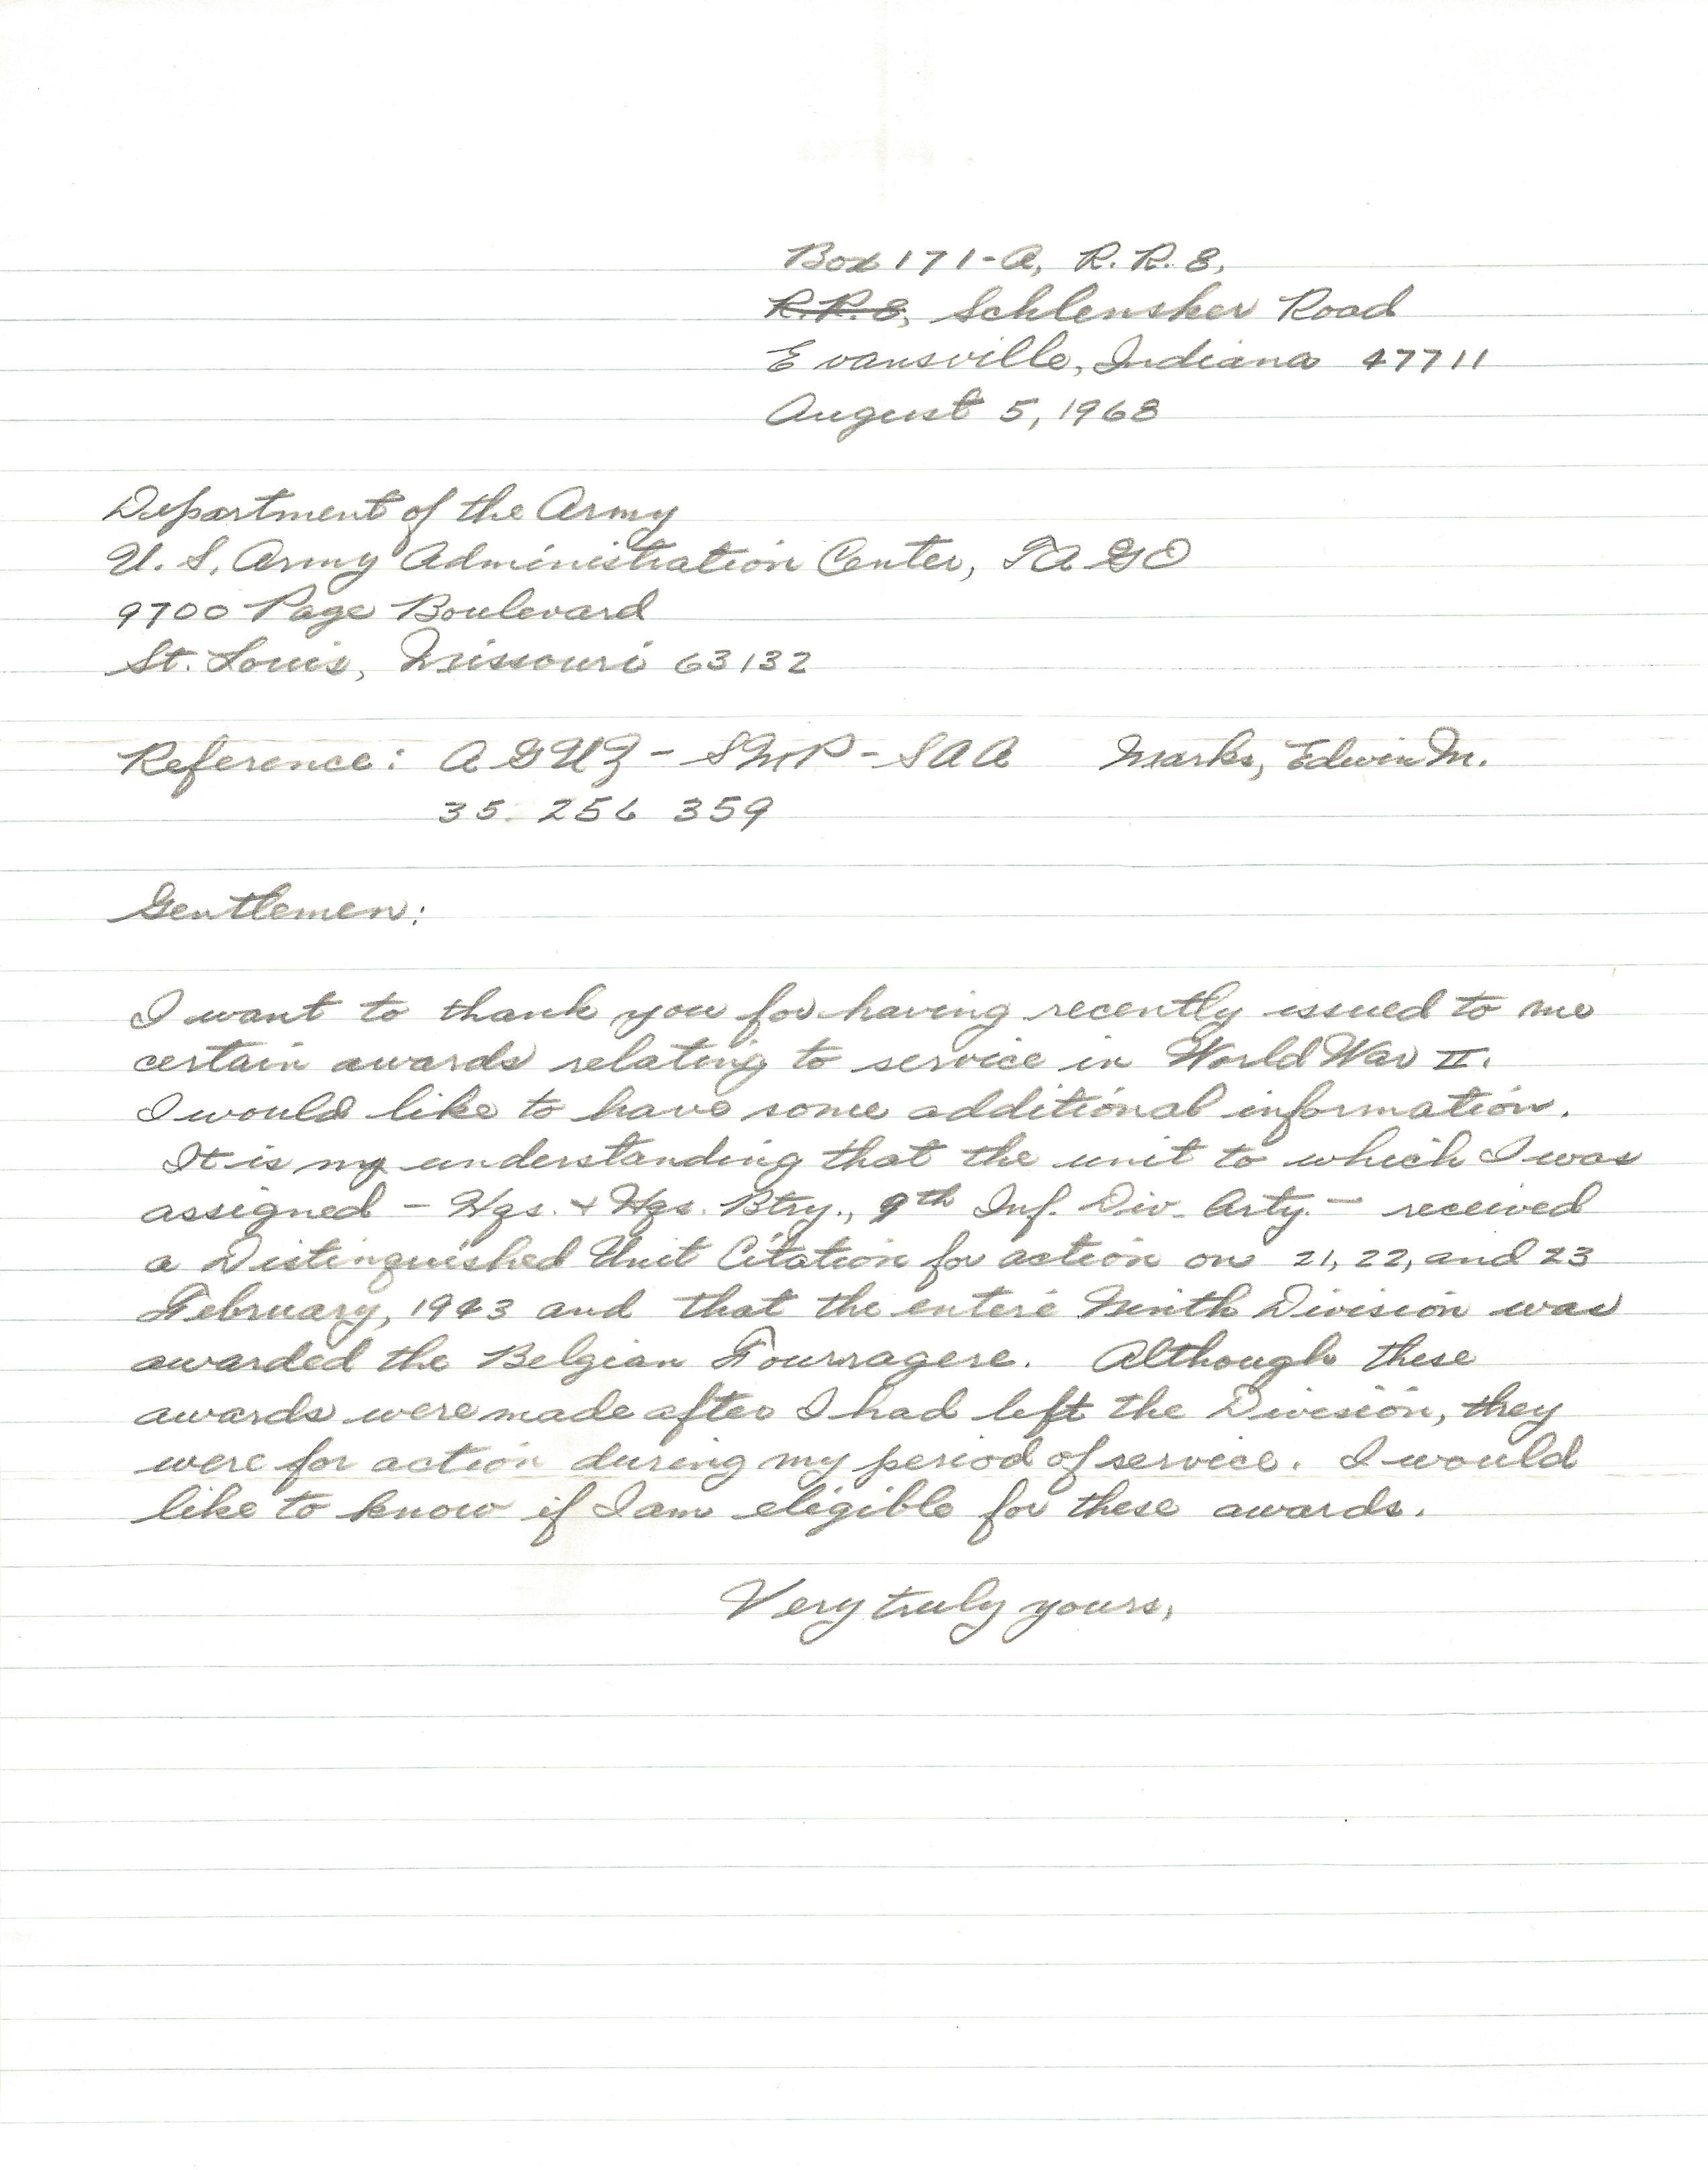 Box 171-A, R.R. 8,
R.R. 8, Schlensker Road
Evansville, Indiana 47711
August 5, 1968
Department of the Army
U. S. Army Administration Center, TAGO
9700 Page Boulevard
St. Louis, Missouri 63132
Reference: AGUZ-SMP-SAA Marks, Edwin M.
35 256 359
Gentlemen:
I want to thank you for having recently issued to me
certain awards relating to service in World War II.
I would like to have some additional information.
It is my understanding that the unit to which I was
assigned - Hqs. + Hqs. Btry., 9th Inf. Div. Arty. - received
a Distinguished Unit Citation for action on 21, 22, and 23
February, 1943 and that the entire Ninth Division was
awarded the Belgian Fourragere. Although these
awards were made after I had left the Division, they
were for action during my period of service. I would
like to know if I am eligible for these awards.
Very truly yours,